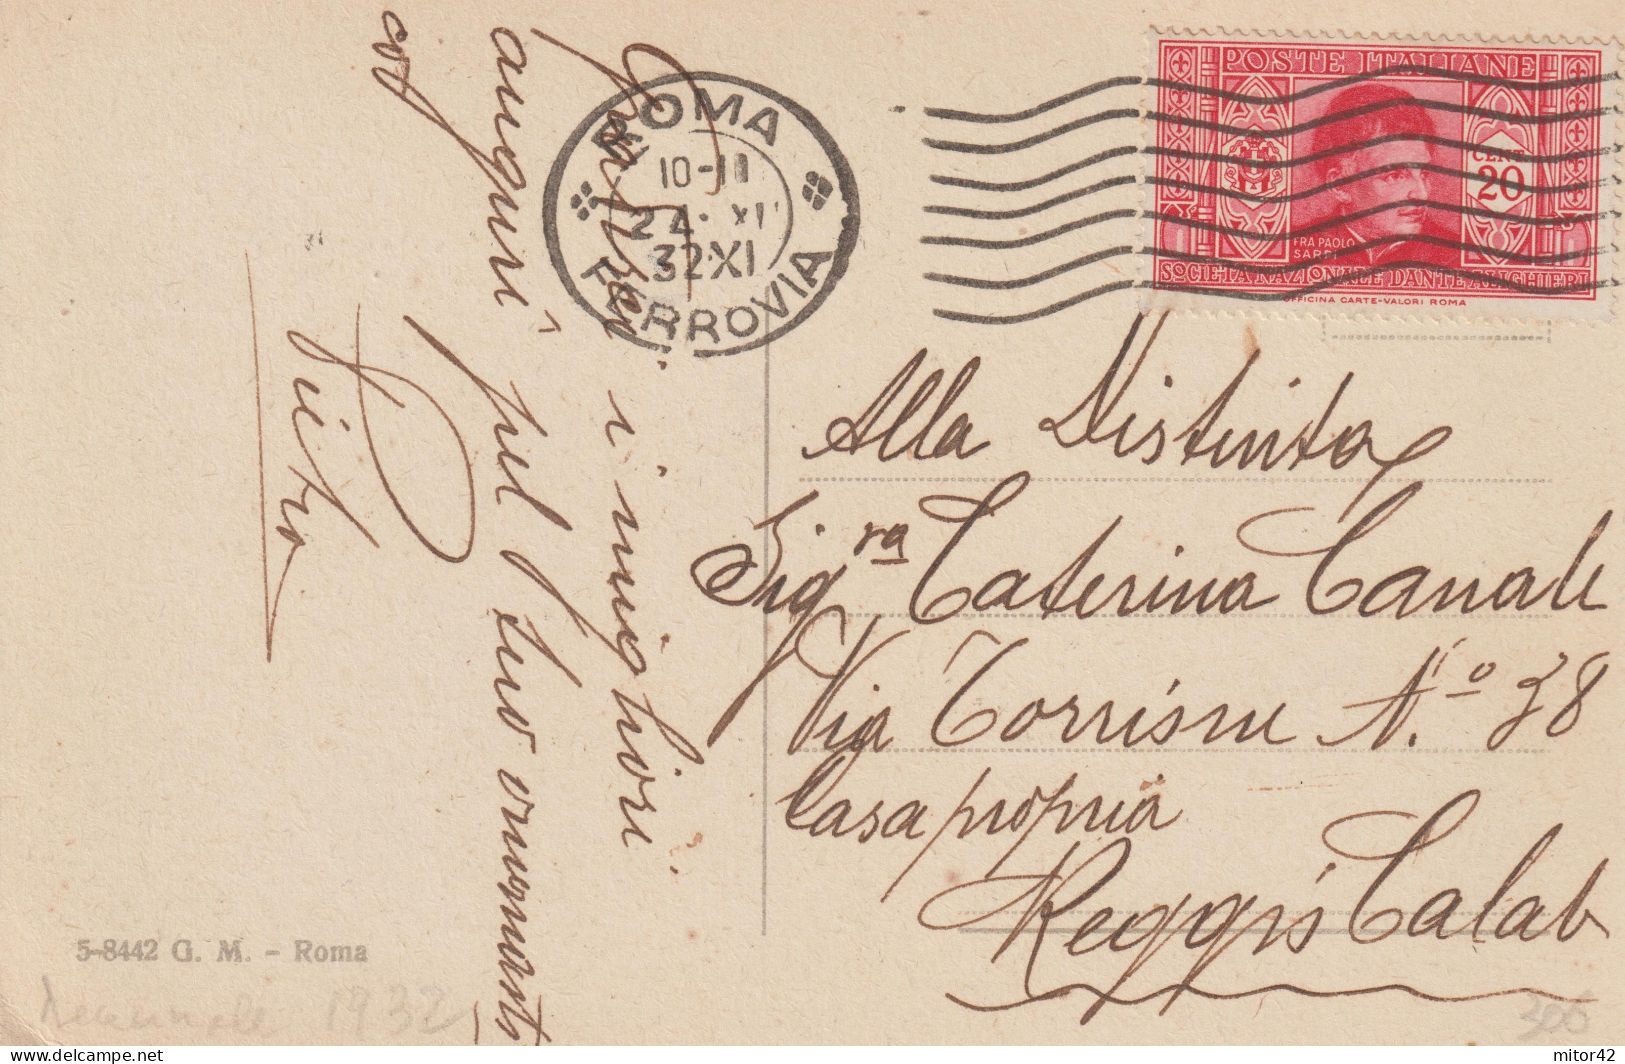 POSTE ITALIANE
CENT. 20
FRA PAOLO
SARPI
SOCIETÀ NAZIONALE DANTE ALIGHIERI
OFFICINA CARTE-VALORI ROMA
ROMA
10-11
24 · XI
32·XI
FERROVIA
i migliori
auguri pel tuo onomastico
Pietro
Alla Distinta
Sig.ra Caterina Canale
Via Torrione N.º 38
Casa propria
Reggio Calab
5-8442 G. M. - Roma
1932
306
mitor42